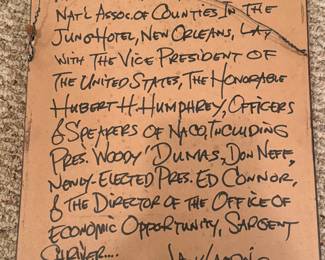 NAT'L ASSOC. OF COUNTIES IN THE
JUNG HOTEL, NEW ORLEANS, LA,
WITH THE VICE PRESIDENT OF
THE UNITED STATES, THE HONORABLE
HUBERT H. HUMPHREY, OFFICERS
& SPEAKERS OF NACO, INCLUDING
PRES. WOODY DUMAS, DON NEFF,
NEWLY-ELECTED PRES. ED CONNOR,
& THE DIRECTOR OF THE OFFICE OF
ECONOMIC OPPORTUNITY, SARGENT
SHRIVER...